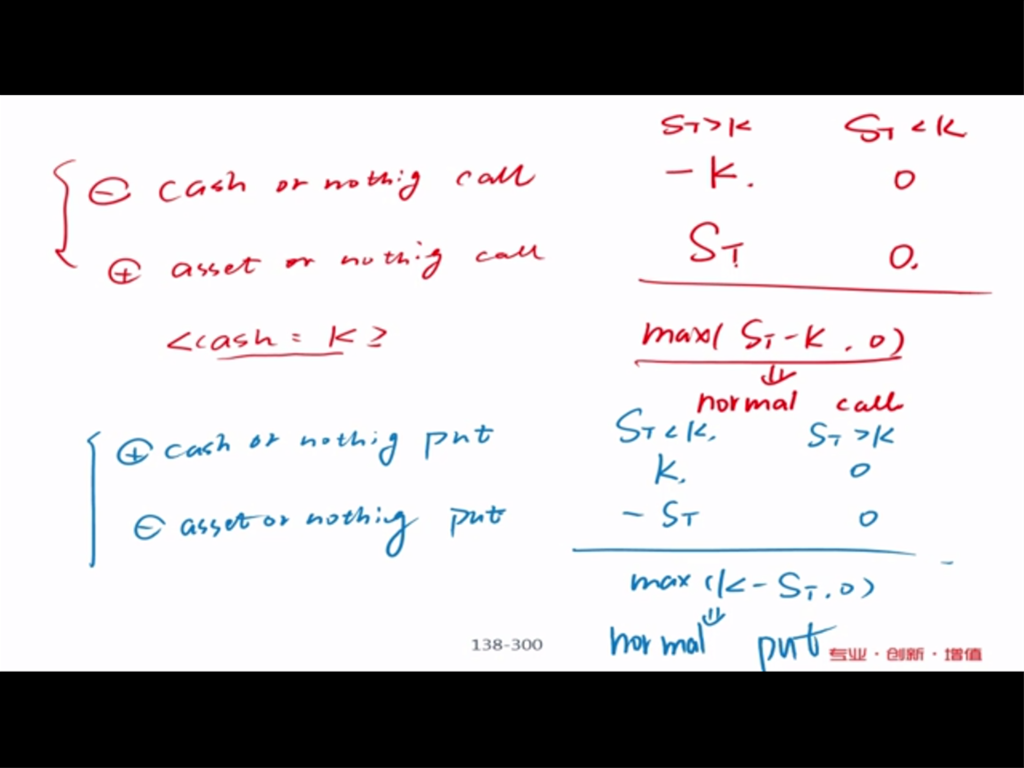 ST>K ST<K
⊖ cash or nothig call -K. 0
⊕ asset or nothig call ST. 0.
<cash = K> max(ST-K, 0)
⇓
normal call
ST<K. ST>K
⊕ cash or nothig put K. 0
⊖ asset or nothing put - ST 0
max(K-ST, 0)
⇓
normal put
138-300
专业·创新·增值